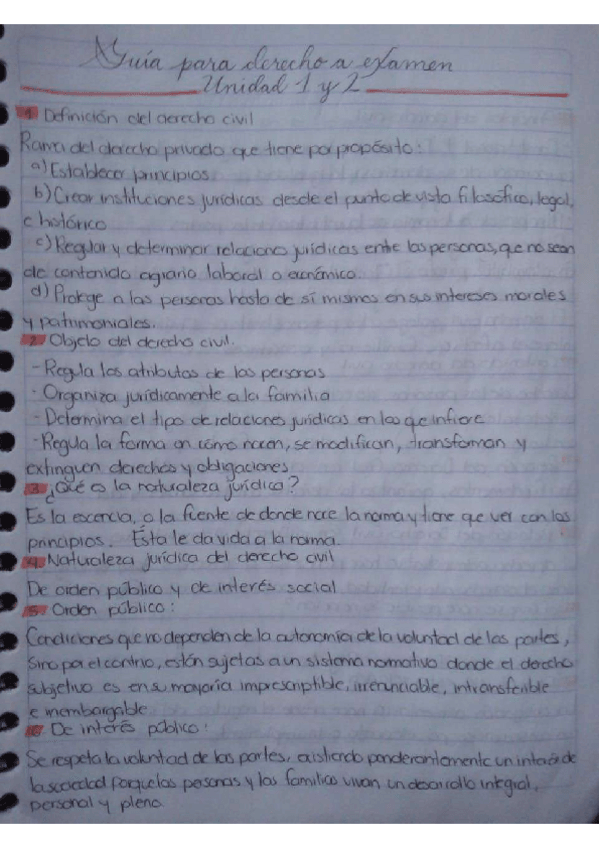 Guía para derecho a examen
Unidad 1 y 2
1. Definición del derecho civil
Rama del derecho privado que tiene por propósito:
a) Establecer principios
b) Crear instituciones jurídicas desde el punto de vista filosófico, legal,
e histórico
c) Regular y determinar relaciones jurídicas entre las personas, que no sean
de contenido agrario laboral o económico.
d) Protege a las personas hasta de sí mismos en sus intereses morales
y patrimoniales.
2. Objeto del derecho civil.
- Regula los atributos de las personas
- Organiza jurídicamente a la familia
- Determina el tipo de relaciones jurídicas en las que infiere
- Regula la forma en cómo nacen, se modifican, transforman y
extinguen derechos y obligaciones
3. ¿Qué es la naturaleza jurídica?
Es la escencia, o la fuente de donde nace la norma y tiene que ver con los
principios. Ésta le da vida a la norma.
4. Naturaleza jurídica del derecho civil
De orden público y de interés social
5. Orden público:
Condiciones que no dependen de la autonomía de la voluntad de las partes,
sino por el contrio, están sujetas a un sistema normativo donde el derecho
subjetivo es en su mayoría imprescriptible, irrenunciable, intransferible
e inembargable.
6. De interés público:
Se respeta la voluntad de las partes, existiendo ponderantemente un interés de
la sociedad porque las personas y las familias vivan un desarrollo integral,
personal y pleno.